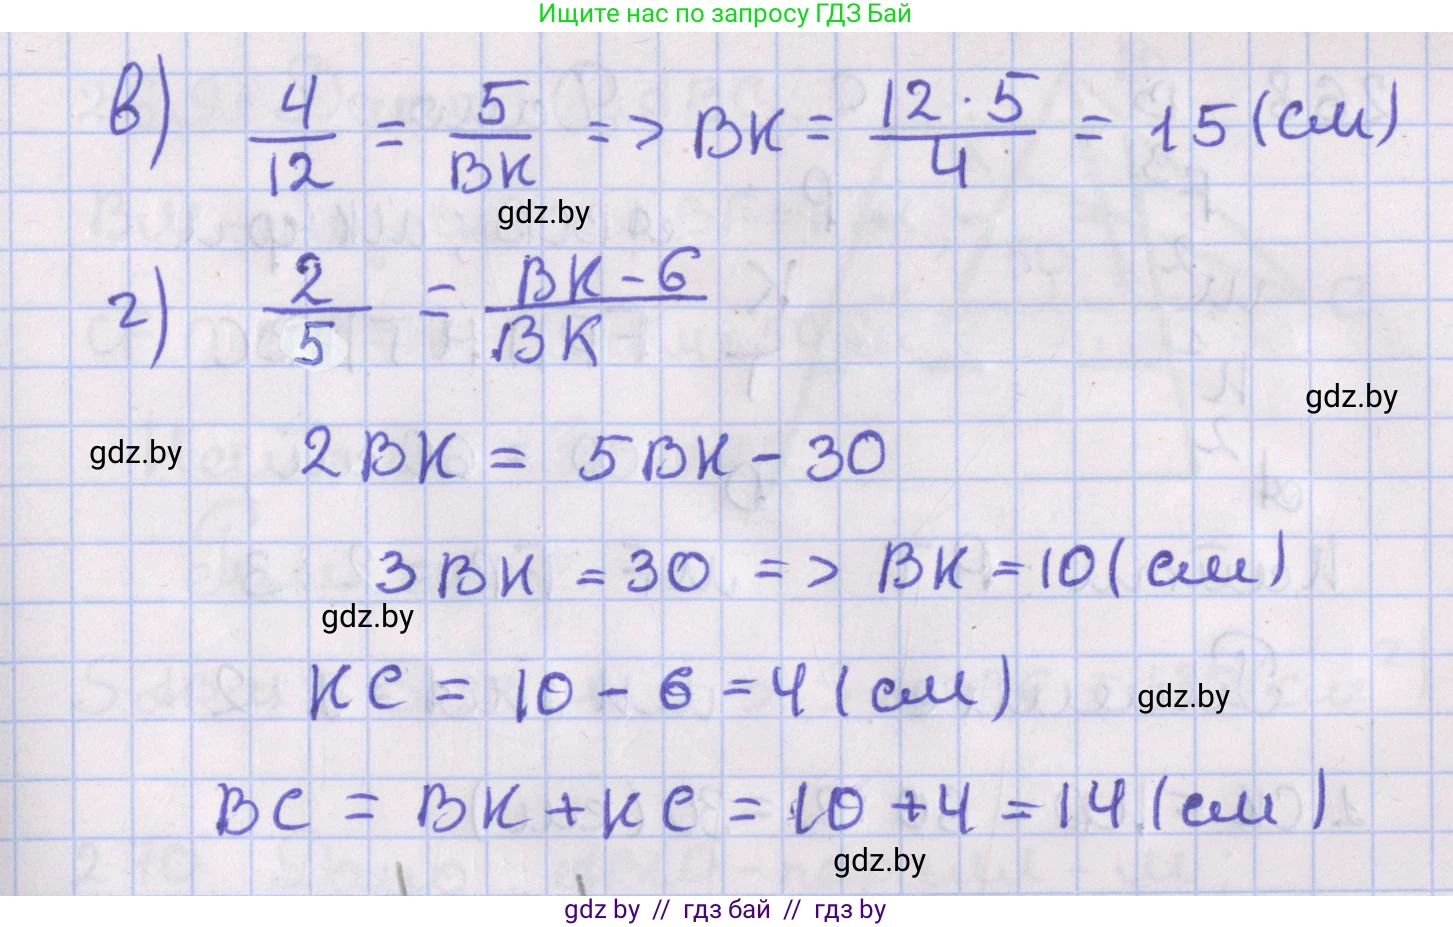 Ищите нас по запросу ГДЗ Бай
в) 4/12 = 5/ВК => ВК = 12 · 5/4 = 15 (см)
gdz.by
г) 2/5 = ВК - 6/ВК
gdz.by
gdz.by
2ВК = 5ВК - 30
3ВК = 30 => ВК = 10 (см)
gdz.by
КС = 10 - 6 = 4 (см)
gdz.by
ВС = ВК + КС = 10 + 4 = 14 (см)
gdz.by
gdz by // гдз бай // гдз by